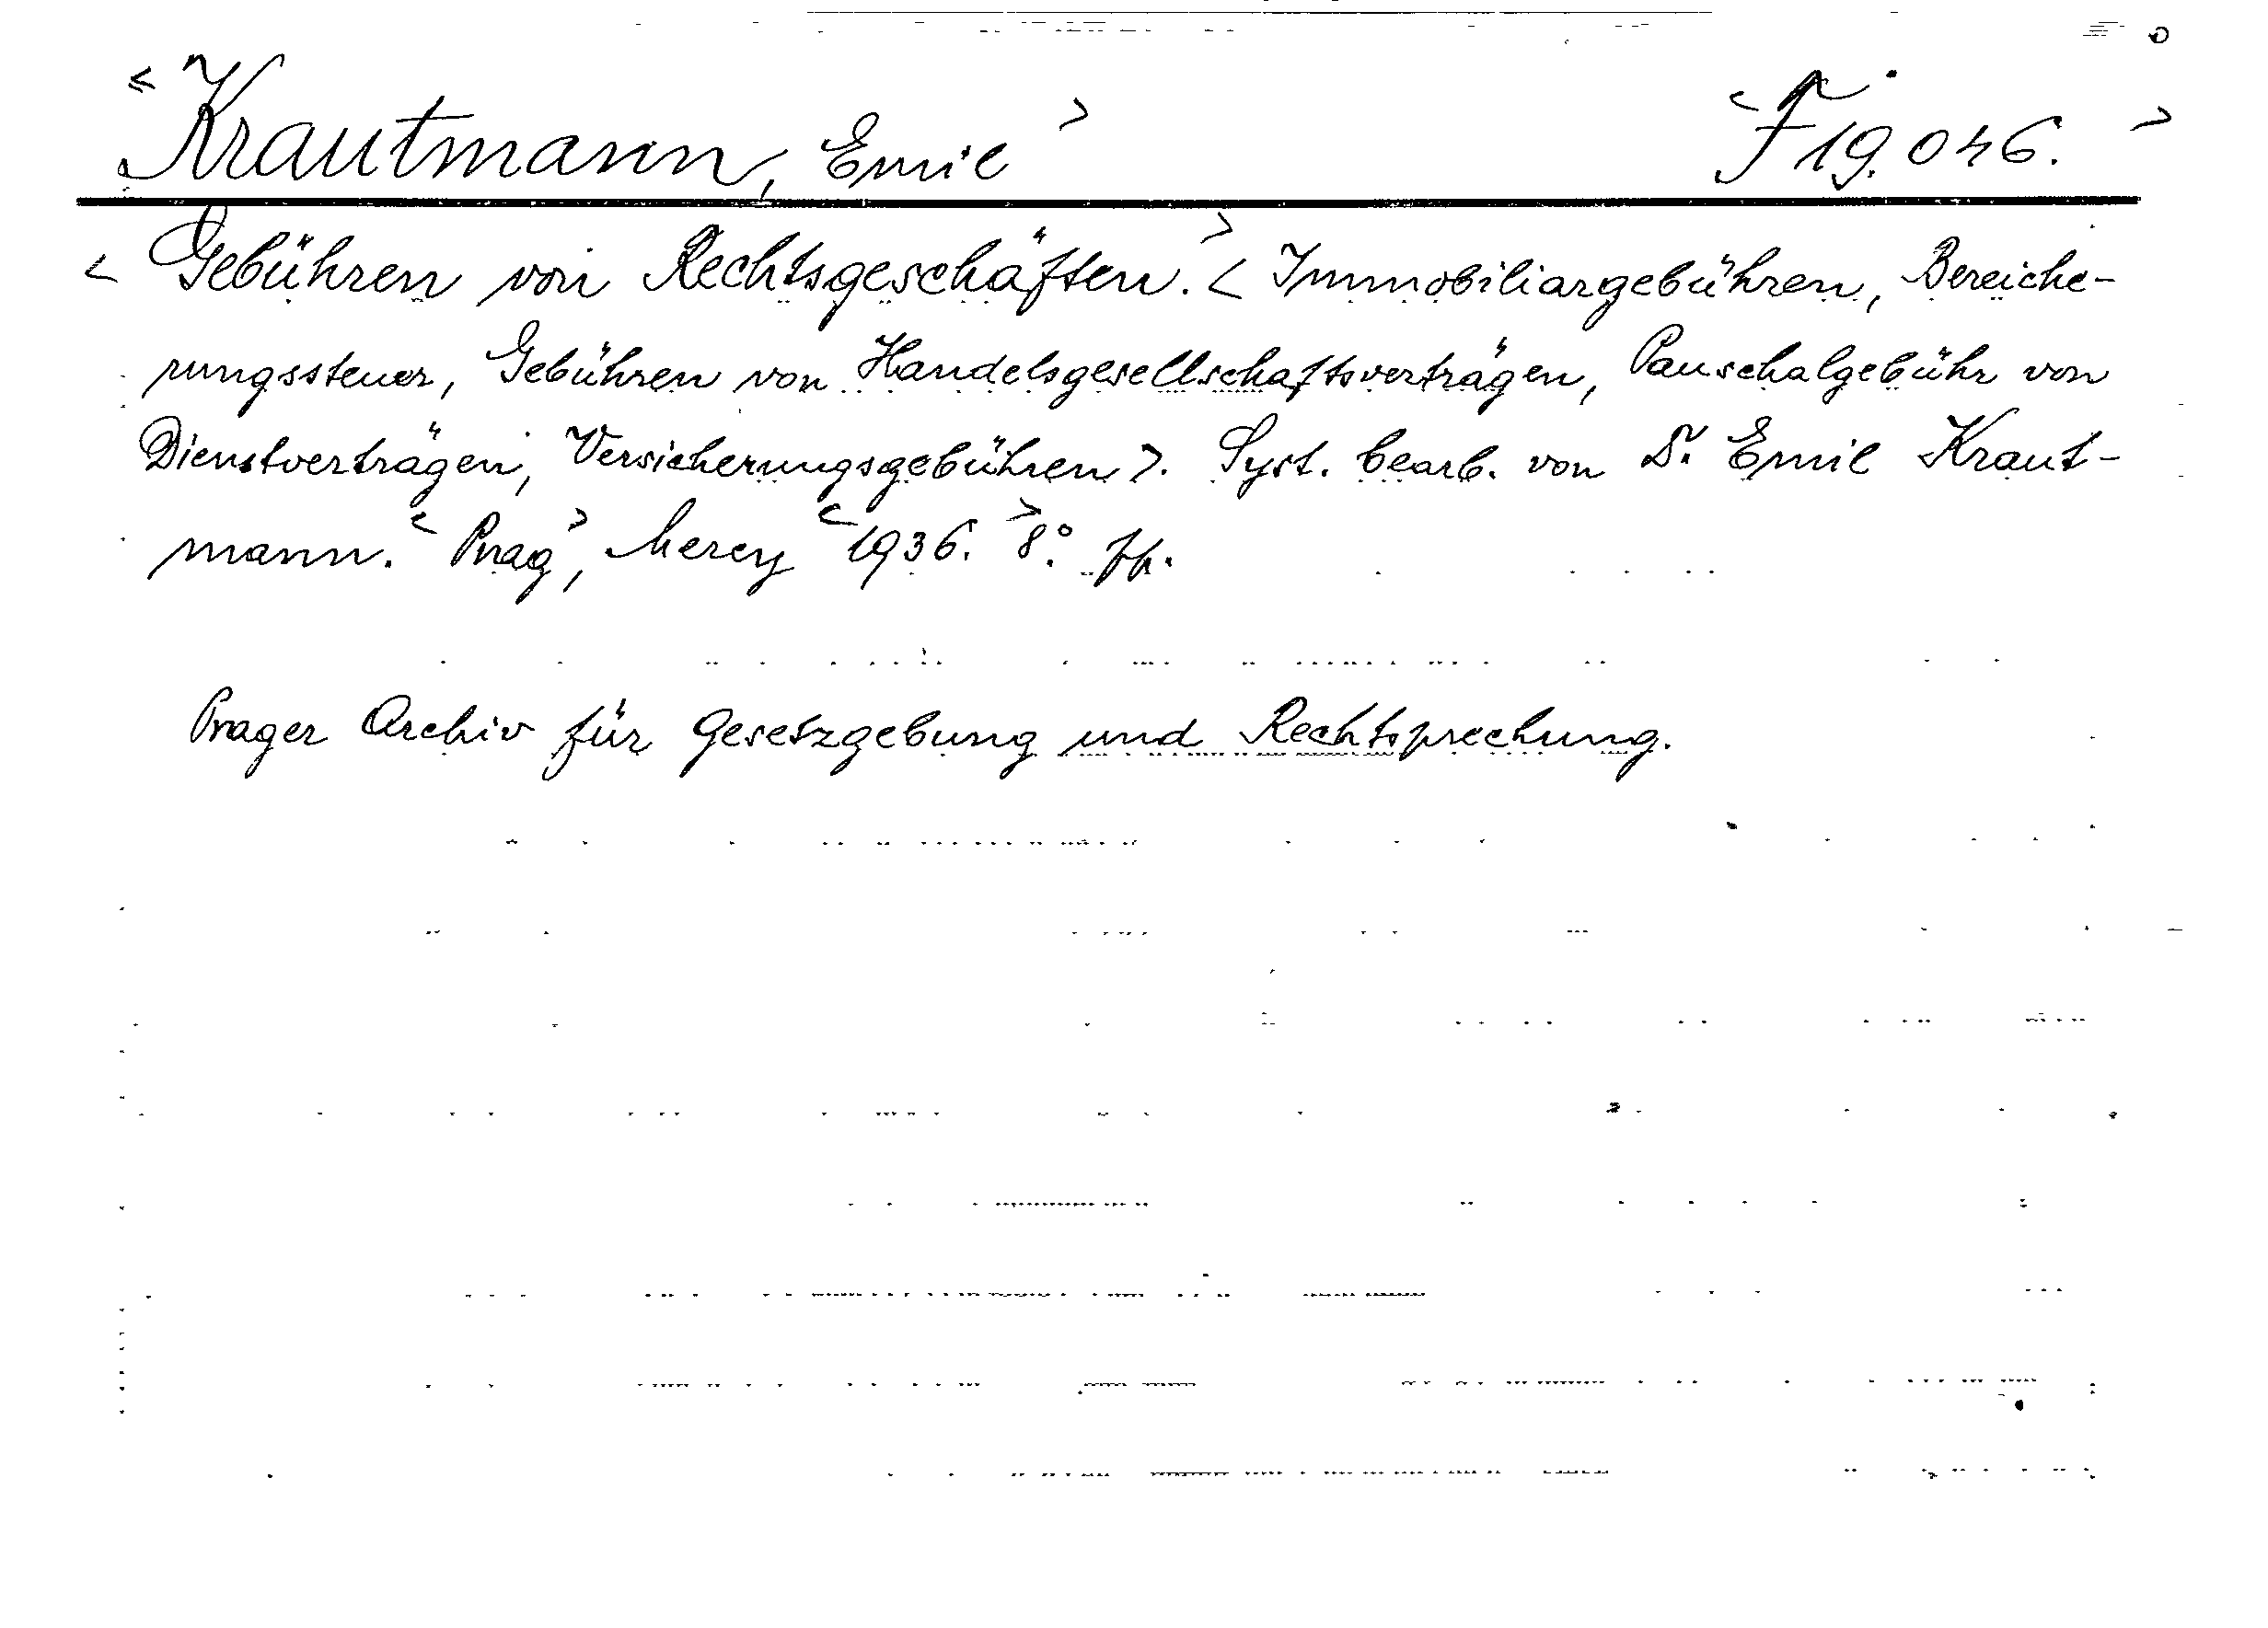 <Krautmann, Emil> <F 19.046.>
<Gebühren von Rechtsgeschäften.> <Immobiliargebühren, Bereiche-
rungssteuer, Gebühren von Handelsgesellschaftsverträgen, Pauschalgebühr von
Dienstverträgen, Versicherungsgebühren>. Syst. bearb. von Dr. Emil Kraut-
mann. <Prag>, Mercy <1936.> 8°.
Prager Archiv für Gesetzgebung und Rechtsprechung.